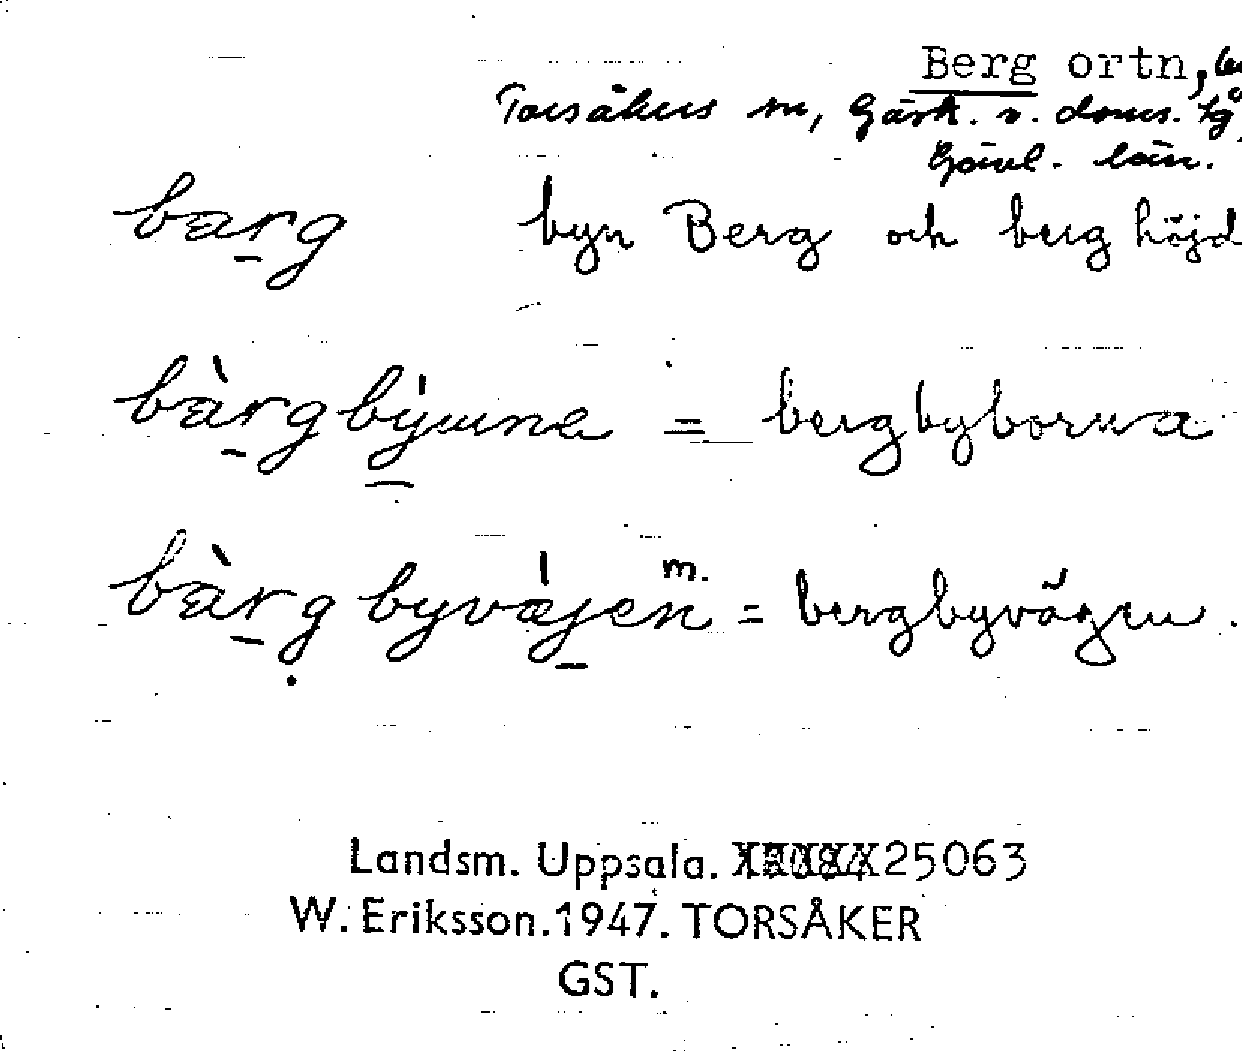 Berg ortn,
Torsåkers sn, Gästr. ö. doms. tg
Gävl. län.
barg byn Berg och berg höjd
bàrgbýwnɑ = bergbyborna
bàrg byvǽjen m. = bergbyvägen.
Landsm. Uppsala. 25063
W. Eriksson. 1947. TORSÅKER
GST.